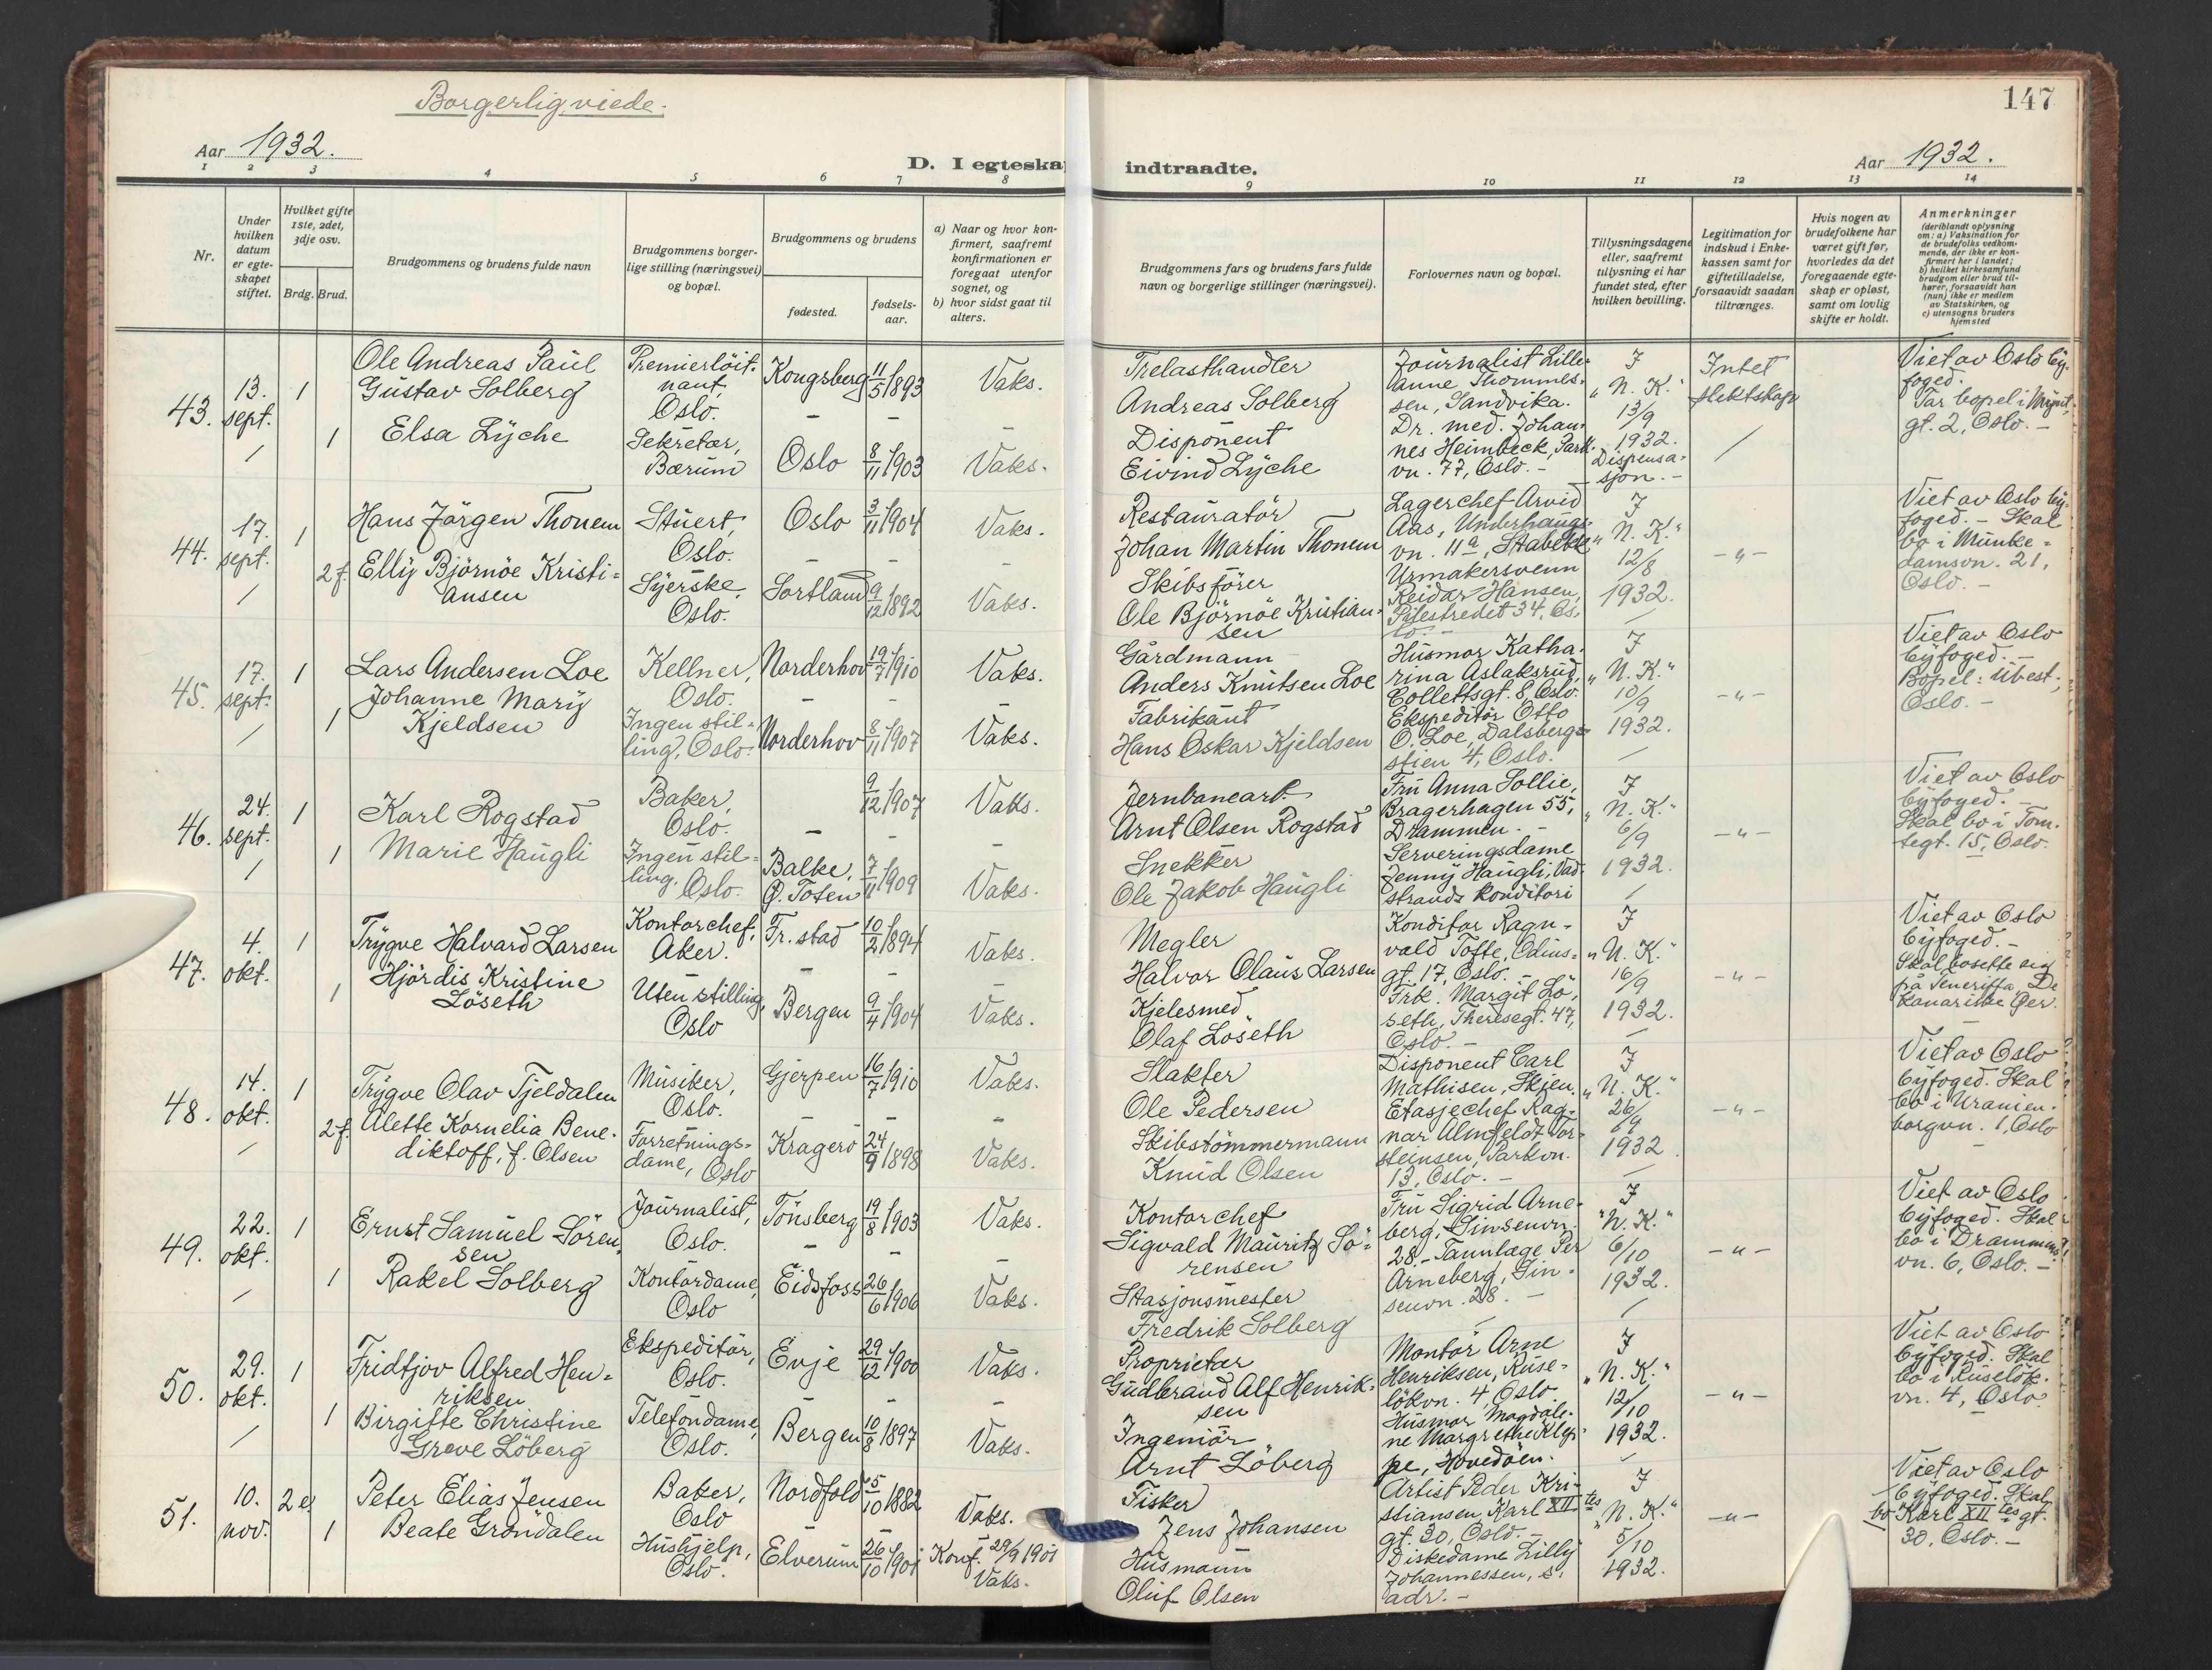 Borgerlig viede.
147
Aar 1932.
D. I egteska
indtraadte.
Aar 1932.
1 2 3 4 5 6 7 8 9 10 11 12 13 14
Nr.
Under hvilken datum er egteskapet stiftet.
Hvilket gifte 1ste, 2det, 3dje osv.
Brdg. Brud.
Brudgommens og brudens fulde navn
Brudgommens borgerlige stilling (næringsvei) og bopæl.
Brudgommens og brudens
fødested.
fødselsaar.
a) Naar og hvor konfirmert, saafremt konfirmationen er foregaat utenfor sognet, og
b) hvor sidst gaat til alters.
Brudgommens fars og brudens fars fulde navn og borgerlige stillinger (næringsvei).
Forlovernes navn og bopæl.
Tillysningsdagene eller, saafremt tillysning ei har fundet sted, efter hvilken bevilling.
Legitimation for indskud i Enkekassen samt for giftetilladelse, forsaavidt saadan tiltrænges.
Hvis nogen av brudefolkene har været gift før, hvorledes da det foregaaende egteskap er opløst, samt om lovlig skifte er holdt.
Anmerkninger (deriblandt oplysning om: a) Vaksination for de brudefolks vedkommende, der ikke er konfirmert her i landet; b) hvilket kirkesamfund brudgom eller brud tilhører, forsaavidt han (hun) ikke er medlem av Statskirken, og c) utensogns bruders hjemsted
43. 13. sept. 1
Ole Andreas Paul Gustav Solberg
Premierlöitnant, Oslo.
Kongsberg 11/5 1893 Vaks.
1 Elsa Lyche
Sekretær, Bærum
Oslo 8/11 1903 Vaks.
Trelasthandler
Andreas Solberg
Disponent
Eivind Lyche
Journalist Lilleanne Thommessen, Sandvika.
Dr. med. Johannes Heimbeck, Parkvn. 77, Oslo. -
I "N. K." 13/9 1932. Dispensasjon. -
Intet slektskap
Viet av Oslo byfoged.
Tar bopel i gt. 2, Oslo. -
44. 17. sept. 1
Hans Jörgen Thonem
Stuert, Oslo.
Oslo 3/11 1904 Vaks.
2 f. Elly Björnöe Kristiansen
Syerske, Oslo.
Sortland 9/12 1892 Vaks.
Restauratör
Johan Martin Thonem
Skibsförer
Ole Björnöe Kristiansen
Lagerchef Arvid Aas, Underhaugsvn. 11a, Stabekk
Urmakersvenn Reidar Hansen, Pilestredet 34, Oslo. -
I "N. K." 12/8 1932.
- " -
Viet av Oslo byfoged. - Skal bo i Munkedamsvn. 21, Oslo. -
45. 17. sept. 1
Lars Andersen Loe
Kellner, Oslo.
Norderhov 19/7 1910 Vaks.
1 Johanne Mary Kjeldsen
Ingen stilling, Oslo.
Norderhov 8/11 1907 Vaks.
Gårdmann
Anders Knutsen Loe
Fabrikant
Hans Oskar Kjeldsen
Husmor Katharina Aslaksrud, Collettsgt. 8, Oslo.
Ekspeditör Otto O. Loe, Dalsbergstien 4, Oslo.
I "N. K." 10/9 1932.
- " -
Viet av Oslo byfoged. -
Bopel: Ubest., Oslo. -
46. 24. sept. 1
Karl Rogstad
Baker, Oslo.
9/12 1907 Vaks.
1 Marie Haugli
Ingen stilling, Oslo.
Balke, Ö. Toten 7/11 1909 Vaks.
Jernbanearb.
Arnt Olsen Rogstad
Snekker
Ole Jakob Haugli
Fru Anna Sollie, Bragerhagen 55, Drammen. -
Serveringsdame Jenny Haugli, Vadstrands konditori
I "N. K." 6/9 1932.
- " -
Viet av Oslo byfoged. -
Skal bo i Tomtegt. 15, Oslo.
47. 4. okt. 1
Trygve Halvard Larsen
Kontorchef, Aker.
Fr.stad 10/2 1894 Vaks.
1 Hjördis Kristine Löseth
Uten stilling, Oslo
Bergen 9/4 1904 Vaks.
Megler
Halvor Olaus Larsen
Kjelesmed
Olaf Löseth
Konditor Ragnvald Tofte, Odinsgt. 17, Oslo. -
Frk. Margit Löseth, Theresegt. 47, Oslo. -
I "N. K." 16/9 1932.
- " -
Viet av Oslo byfoged. -
Skal bosette sig på Teneriffa, De kanariske öer.
48. 14. okt. 1
Trygve Olav Tjeldalen
Musiker, Oslo.
Gjerpen 16/7 1910 Vaks.
2 f. Alette Kornelia Benediktoff, f. Olsen
Forretningsdame, Oslo
Kragerö 24/9 1898 Vaks.
Slakter
Ole Pedersen
Skibstömmermann
Knud Olsen
Disponent Carl Mathisen, Skien.
Etasjechef Ragnar Almfeldt Torsteinsen, Parkvn. 13, Oslo. -
I "N. K." 26/9 1932.
- " -
Viet av Oslo byfoged. Skal bo i Uranienborgvn. 1, Oslo
49. 22. okt. 1
Ernst Samuel Sörensen
Journalist, Oslo.
Tönsberg 19/8 1903 Vaks.
1 Rakel Solberg
Kontordame, Oslo
Eidsfoss 26/6 1906 Vaks.
Kontorchef
Sigvald Mauritz Sörensen
Stasjonsmester
Fredrik Solberg
Fru Sigrid Arneberg, Sinsenvn. 28. - Tannlæge Per Arneberg, Sinsenvn. 28. -
I "N. K." 6/10 1932.
- " -
Viet av Oslo byfoged. Skal bo i Drammensvn. 6, Oslo. -
50. 29. okt. 1
Fridtjov Alfred Henriksen
Ekspeditör, Oslo.
Evje 29/12 1900 Vaks.
1 Birgitte Christine Greve Löberg
Telefondame, Oslo.
Bergen 10/8 1897 Vaks.
Proprietær
Gudbrand Alf Henriksen
Ingeniör
Arnt Löberg
Montör Arne Henriksen, Ruselökvn. 4, Oslo.
Husmor Magdalene Margrethe Kleppe, Hovedöen.
I "N. K." 12/10 1932.
- " -
Viet av Oslo byfoged. Skal bo i Ruselökvn. 4, Oslo.
51. 10. nov. 2 e.
Peter Elias Jensen
Baker, Oslo
Nordfold 5/10 1882 Vaks.
1 Beate Gröndalen
Hushjelp, Oslo.
Elverum 26/10 1901 Konf. 29/9 1901 Vaks.
Fisker
Jens Johansen
Husmann
Oluf Olsen
Artist Peder Kristiansen, Karl XII tes gt. 30, Oslo. -
Diskedame Lilly Johannessen, s. adr. -
I "N. K." 5/10 1932.
- " -
Viet av Oslo byfoged. Skal bo Karl XII tes gt. 30, Oslo. -